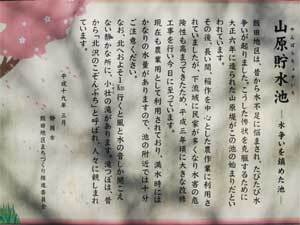 やんばら
山原貯水池
―水争いを鎮めた池―
飯田地区は、昔から水不足に悩まされ、たびたび水
争いが起りました。こうした惨状を克服するために
大正六年に造られた山原堤がこの池の始まりだとい
われています。
その後、長い間、稲作を中心とした農作業に利用さ
れていましたが、下流域に民家が多くなり水害の危
険性も高まってきたため、平成五年頃に大きな改修
工事を行い今日に至っています。
現在も農業用として利用されており、満水時には
かなりの水量がありますので、池の附近では十分
ご注意ください。
なお、北へおよそ1km行くと風と水の音しか聞こえ
ない静かな所に、小壮の滝があります。滝つぼは、昔
から“北沢のごぜんぶち”と呼ばれ、人々に親しまれ
ています。
平成十九年三月
静岡市
飯田地区まちづくり推進委員会